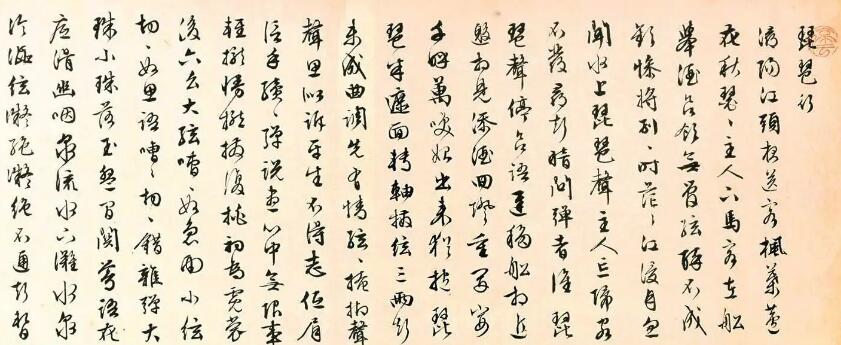 琵琶行
潯陽江頭夜送客楓葉荻
花秋瑟、主人下馬客在船
舉酒欲飲無管絃醉不成
歡慘將別、時茫、江浸月忽
聞水上琵琶聲主人忘歸客
不發尋聲暗問彈者誰琵
琶聲停欲語遲移船相近
邀相見添酒回燈重開宴
千呼萬喚始出來猶抱琵
琶半遮面轉軸撥絃三兩聲
未成曲調先有情絃、掩抑聲
聲思似訴平生不得志低眉
信手續、彈說盡心中無限事
輕攏慢撚抹復挑初為霓裳
後六幺大絃嘈、如急雨小絃
切、如私語嘈、切、錯雜彈大
珠小珠落玉盤間關鶯語花
底滑幽咽泉流水下灘水泉
冷澀絃凝絕凝絕不通聲暫